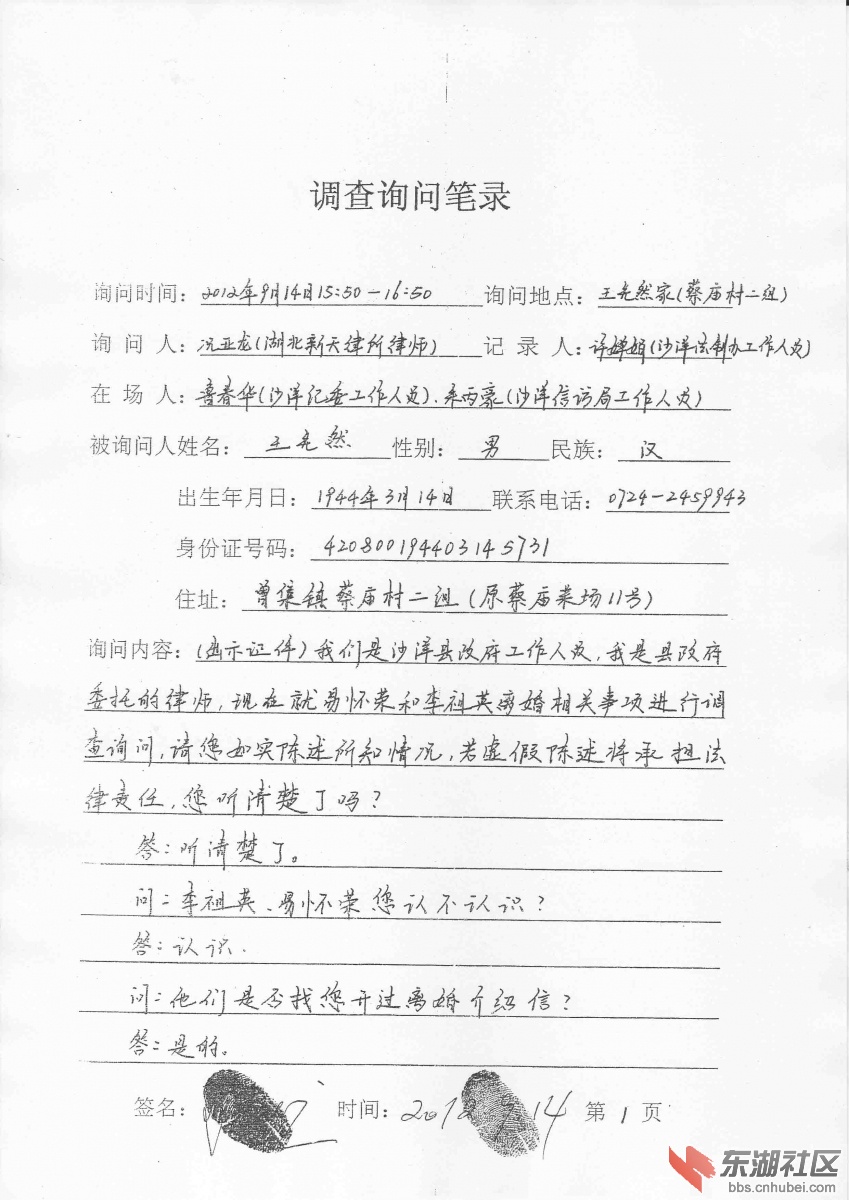 调查询问笔录
询问时间：2012年9月14日15:50-16:50 询问地点：王先然家(蔡庙村二组)
询问人：况亚龙(湖北新天律所律师) 记录人：许婵娟(沙洋法制办工作人员)
在场人：春华(沙洋纪委工作人员)、丙豪(沙洋信访局工作人员)
被询问人姓名：王先然 性别：男 民族：汉
出生年月日：1944年3月14日 联系电话：0724-2459943
身份证号码：420800194403145731
住址：曾集镇蔡庙村二组(原蔡庙菜场11号)
询问内容：(出示证件)我们是沙洋县政府工作人员，我是县政府
委托的律师，现在就易怀荣和李祖英离婚相关事项进行调
查询问，请您如实陈述所知情况，若虚假陈述将承担法
律责任，您听清楚了吗？
答：听清楚了。
问：李祖英、易怀荣您认不认识？
答：认识.
问：他们是否找您开过离婚介绍信？
答：是的。
签名： 时间：2012 9.14 第1页
东湖社区
bbs.cnhubei.com